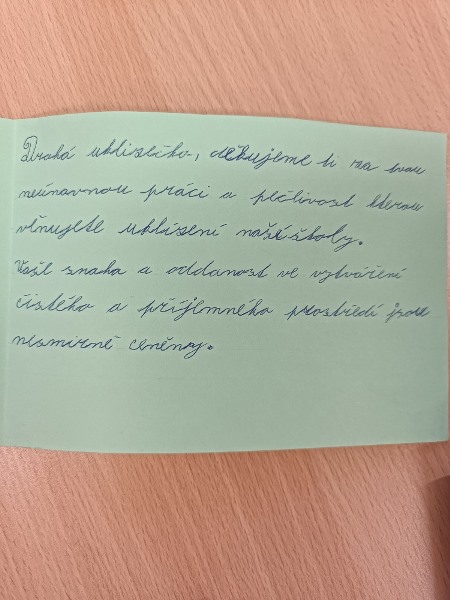 Drahá uklízečko, děkujeme ti za tvou
neúnavnou práci a pečlivost kterou
věnujete uklízení naší školy.
Vaše snaha a oddanost ve vytváření
čistého a příjemného prostředí jsou
nesmírně ceněny.